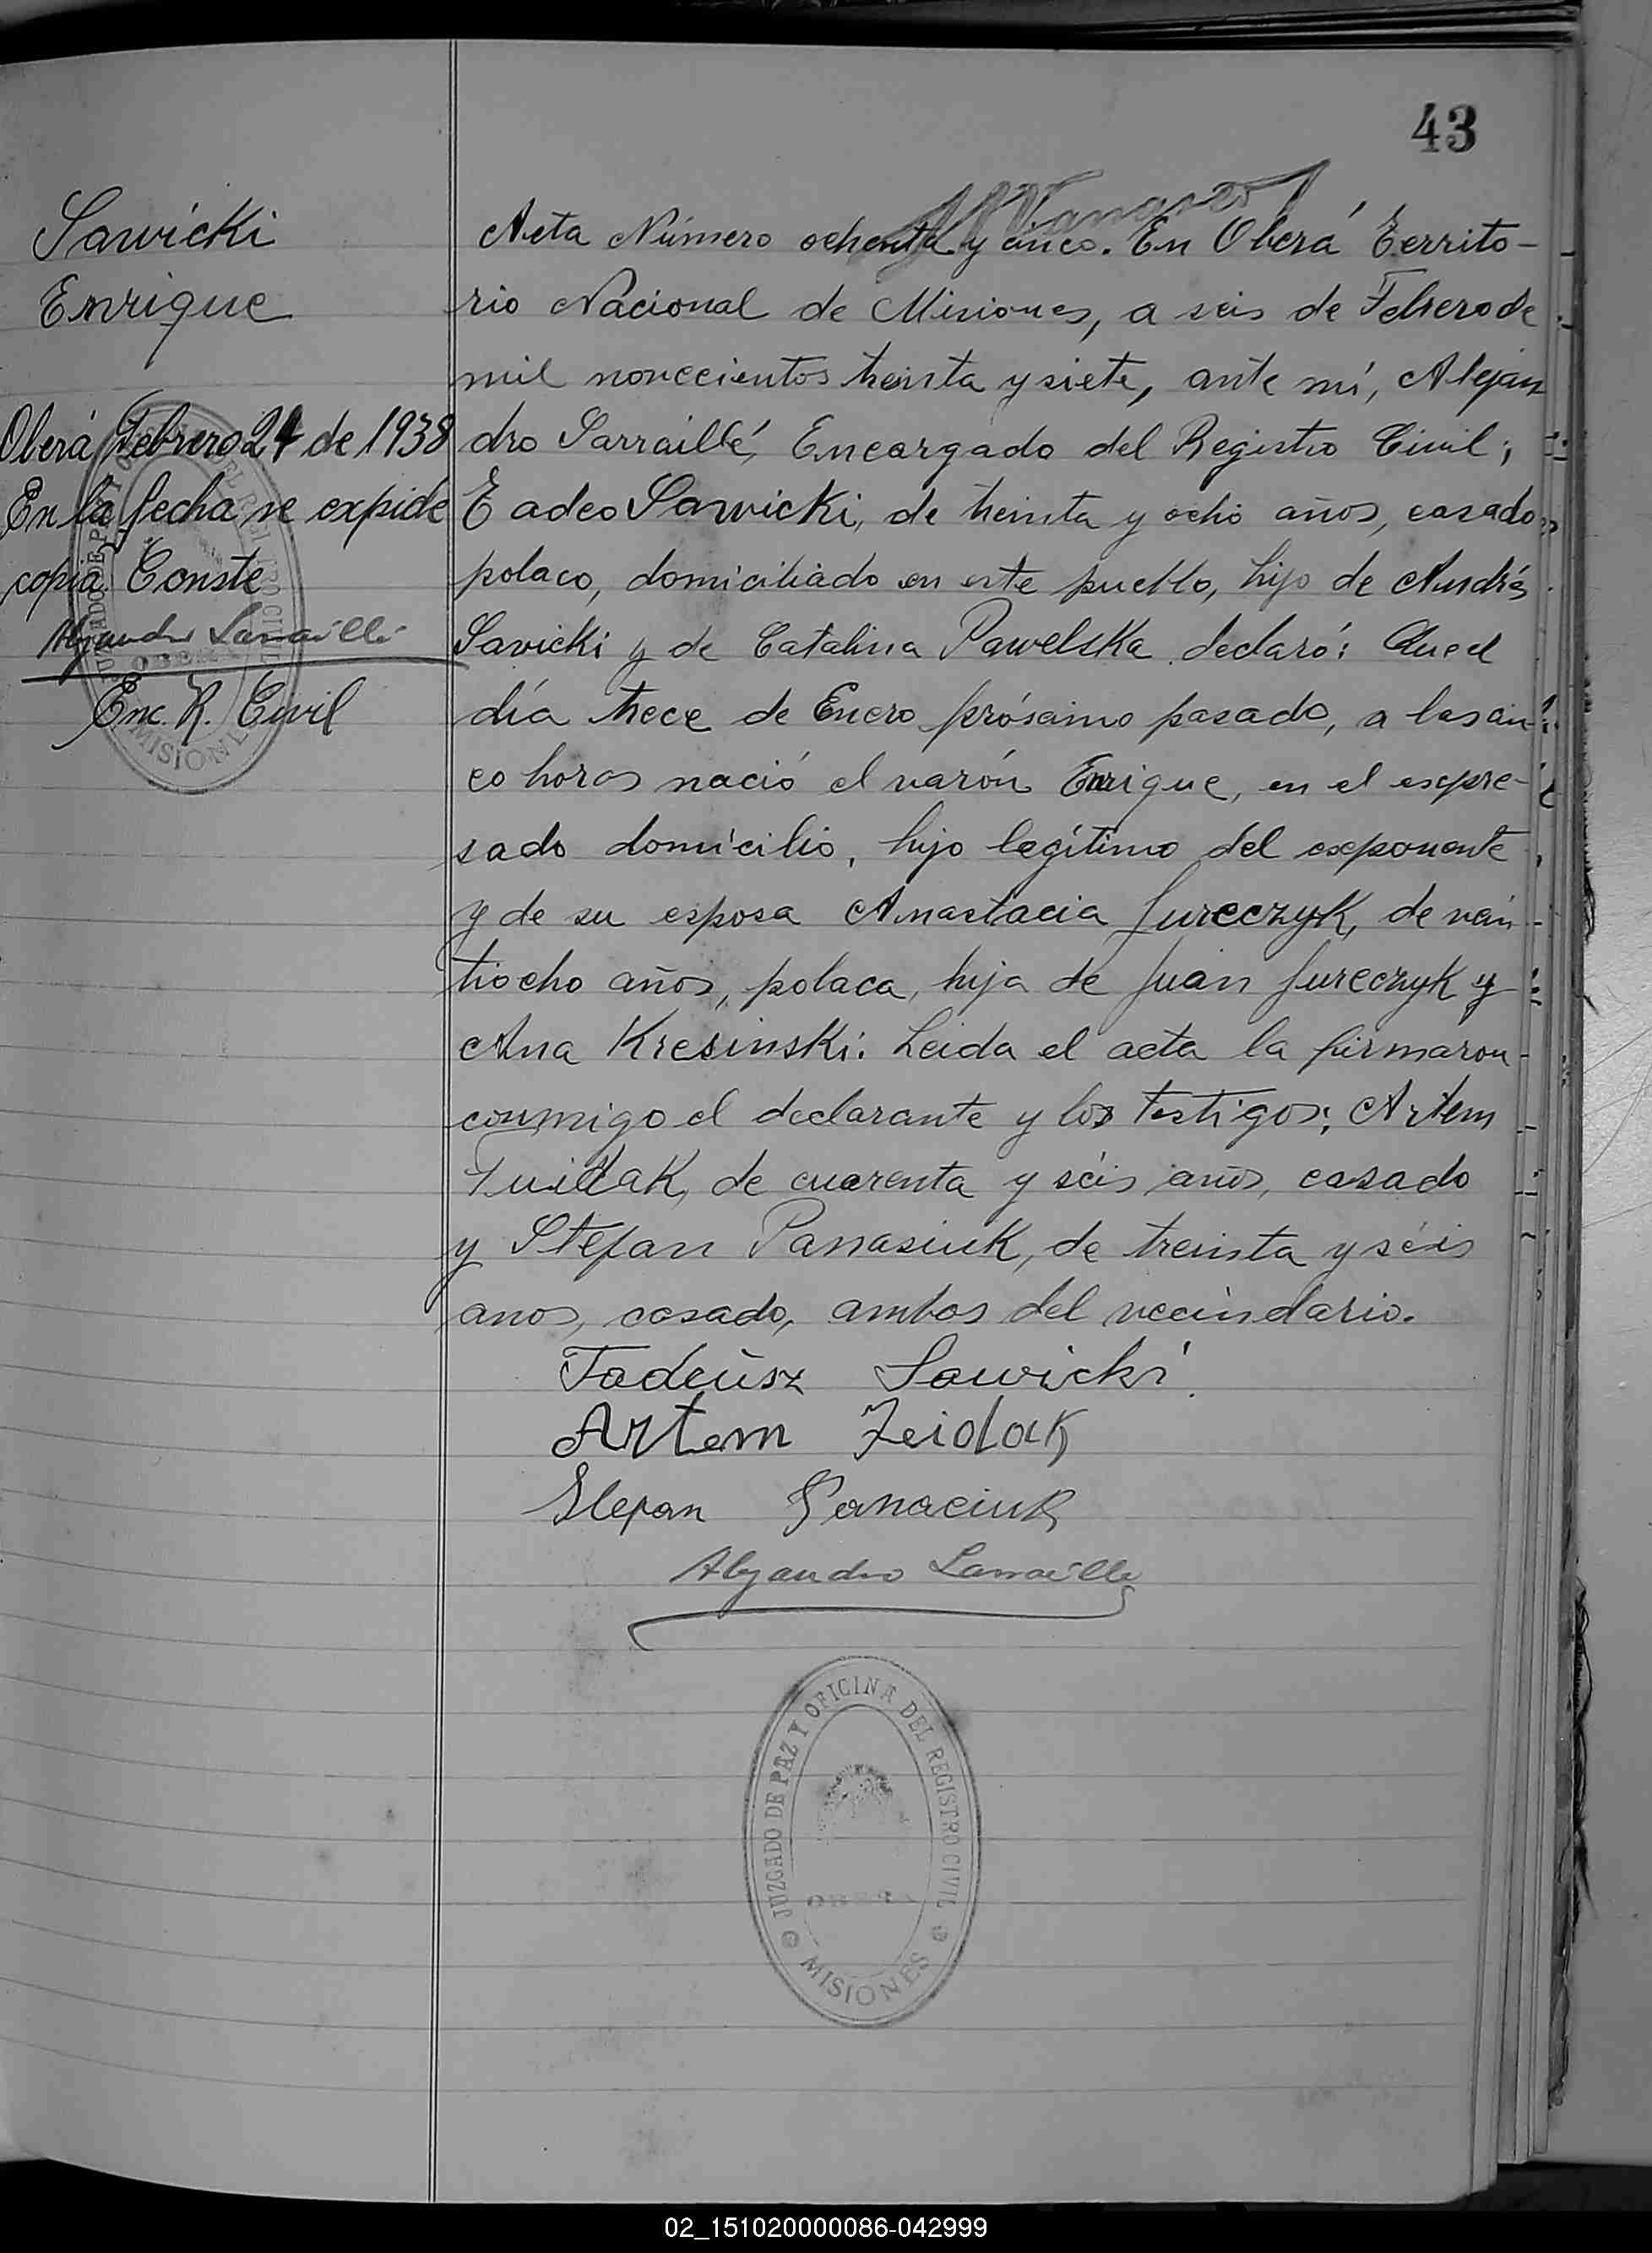 43
Sawicki
Enrique
Oberá Febrero 24 de 1938
En la fecha se expide
copia. Conste
Alejandro Sarraillé
Enc. R. Civil
Acta Número ochenta y cinco. En Oberá Territo-
rio Nacional de Misiones, a seis de Febrero de
mil novecientos treinta y siete, ante mí, Alejan
dro Sarraillé, Encargado del Registro Civil;
Tadeo Sawicki, de treinta y ocho años, casado,
polaco, domiciliado en este pueblo, hijo de Andrés
Savicki y de Catalina Pawelska declaró: Que el
día trece de Enero prósimo pasado, a las cin-
co horas nació el varón Enrique, en el espre-
sado domicilio, hijo legítimo del esponente
y de su esposa Anastacia Jureczyk, de vein
tiocho años, polaca, hija de Juan Jureczyk y
Ana Kresinski. Leida el acta la firmaron
conmigo el declarante y los testigos; Artem
de cuarenta y séis años, casado
y Stefan Panasiuk, de treinta y séis
anos, casado, ambos del vecindario.
Tadeusz Sawicki
Artem Zeidak
Stepan Panaciuk
Alejandro Sarraillé
JUZGADO DE PAZ Y OFICINA DEL REGISTRO CIVIL
OBERA
MISIONES
02_151020000086-042999